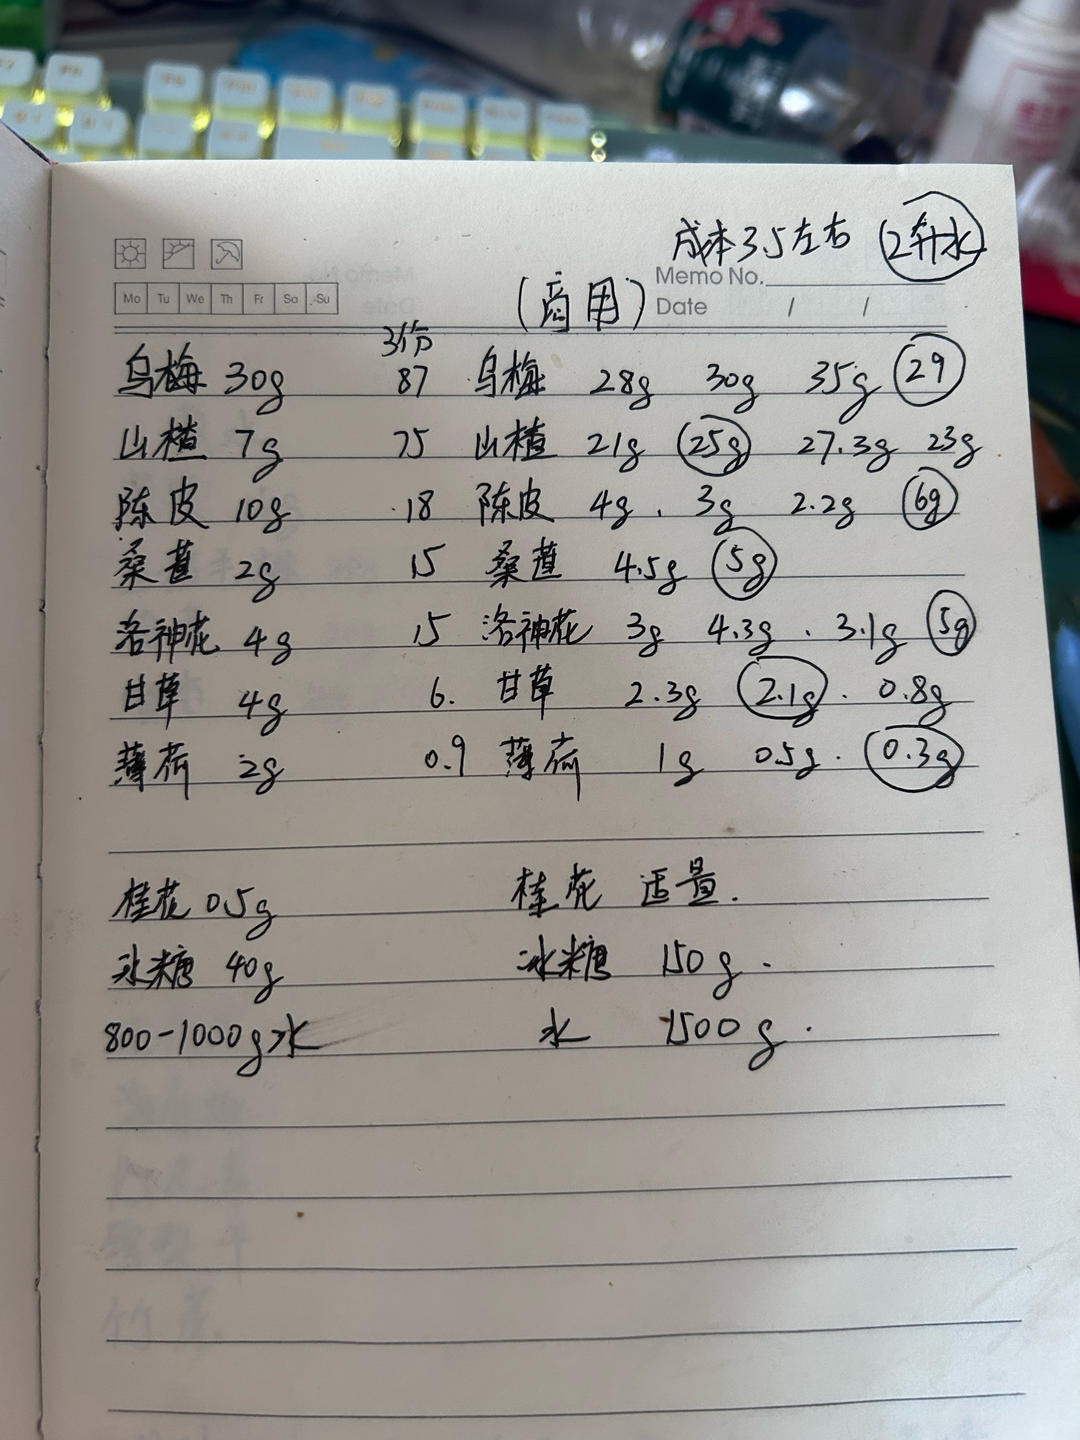 成本3.5左右 (2升水)
Memo No.
(商用) Date / /
Mo Tu We Th Fr Sa Su
3份
乌梅 30g 87 乌梅 28g 30g 35g 29
山楂 7g 75 山楂 21g 25g 27.3g 23g
陈皮 10g 18 陈皮 4g . 3g 2.2g 6g
桑葚 2g 15 桑葚 4.5g 5g
洛神花 4g 15 洛神花 3g 4.3g . 3.1g 5g
甘草 4g 6. 甘草 2.3g 2.1g . 0.8g
薄荷 2g 0.9 薄荷 1g 0.5g . 0.3g
桂花 0.5g 桂花 适量.
冰糖 40g 冰糖 150g .
800-1000g水 水 1500g .